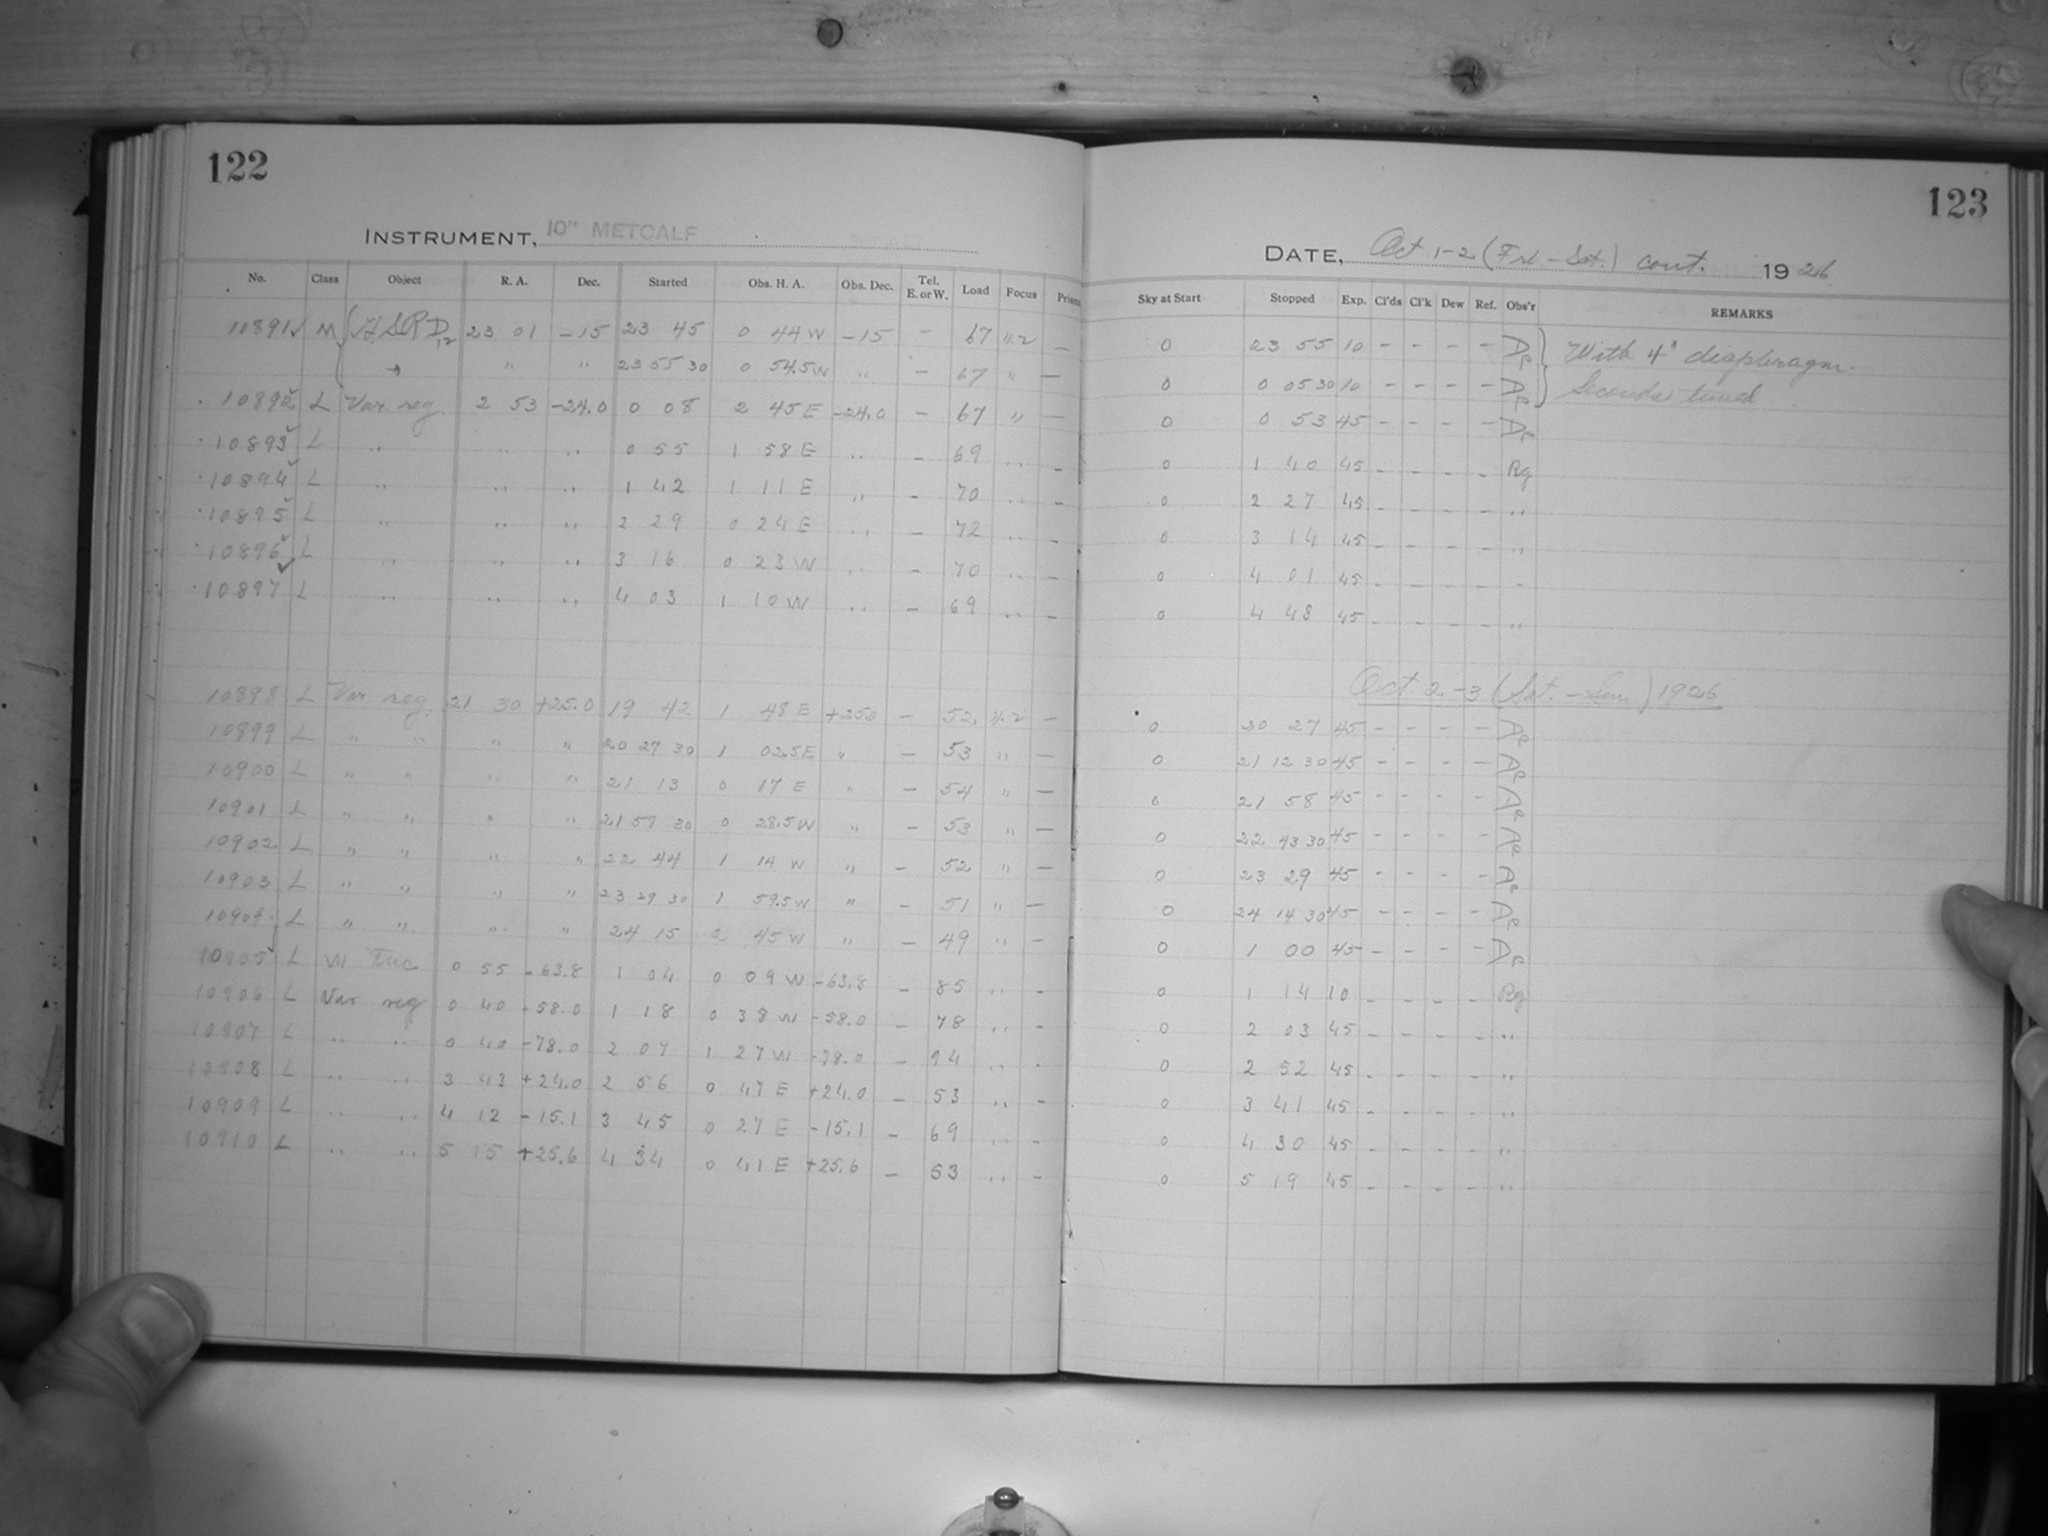 122
INSTRUMENT, 10" METCALF
No. Class Object R. A. Dec. Started Obs. H. A. Obs. Dec. Tel. E. or W. Load Focus Prism
10891 M 23 01 -15 23 45 0 44 W -15 - 67 11.2 -
" " 23 55 30 0 54.5 W " - 67 " -
10892 L Var. reg. 2 53 -24.0 0 08 2 45 E -24.0 - 67 " -
10893 L " " " 0 55 1 58 E " - 69 " -
10894 L " " " 1 42 1 11 E " - 70 " -
10895 L " " " 2 29 0 24 E " - 72 " -
10896 L " " " 3 16 0 23 W " - 70 " -
10897 L " " " 4 03 1 10 W " - 69 " -
10898 L Var. reg. 21 30 +25.0 19 42 1 48 E +250 - 52 11.2 -
10899 L " " " " 20 27 30 1 02.5 E " - 53 " -
10900 L " " " " 21 13 0 17 E " - 54 " -
10901 L " " " " 21 58 30 0 28.5 W " - 53 " -
10902 L " " " " 22 44 1 14 W " - 52 " -
10903 L " " " " 23 29 30 1 59.5 W " - 51 " -
10904 L " " " " 24 15 2 45 W " - 49 " -
10905 L W Tuc 0 55 -63.8 1 04 0 09 W -63.8 - 85 " -
10906 L Var reg 0 40 -58.0 1 18 0 38 W -58.0 - 78 " -
10907 L " " 0 40 -78.0 2 07 1 27 W -78.0 - 94 " -
10908 L " " 3 43 +24.0 2 56 0 47 E +24.0 - 53 " -
10909 L " " 4 12 -15.1 3 45 0 27 E -15.1 - 69 " -
10910 L " " 5 15 +25.6 4 34 0 41 E +25.6 - 53 " -
123
DATE, Oct 1-2 (Fri-Sat.) cont. 1926
Sky at Start Stopped Exp. Cl'ds Cl'k Dew Ref. Obs'r REMARKS
0 23 55 10 - - - - With 4" diaphragm.
0 0 05 30 10 - - - - Seconds timed
0 0 53 45 - - - -
0 1 40 45 - - - - Rg
0 2 27 45 - - - - "
0 3 14 45 - - - - "
0 4 01 45 - - - - "
0 4 48 45 - - - - "
Oct 2-3 (Sat.-Sun) 1926
0 20 27 45 - - - -
0 21 12 30 45 - - - -
0 21 58 45 - - - -
0 22 43 30 45 - - - -
0 23 29 45 - - - -
0 24 14 30 45 - - - -
0 1 00 45 - - - -
0 1 14 10 - - - - Rg
0 2 03 45 - - - - "
0 2 52 45 - - - - "
0 3 41 45 - - - - "
0 4 30 45 - - - - "
0 5 19 45 - - - - "